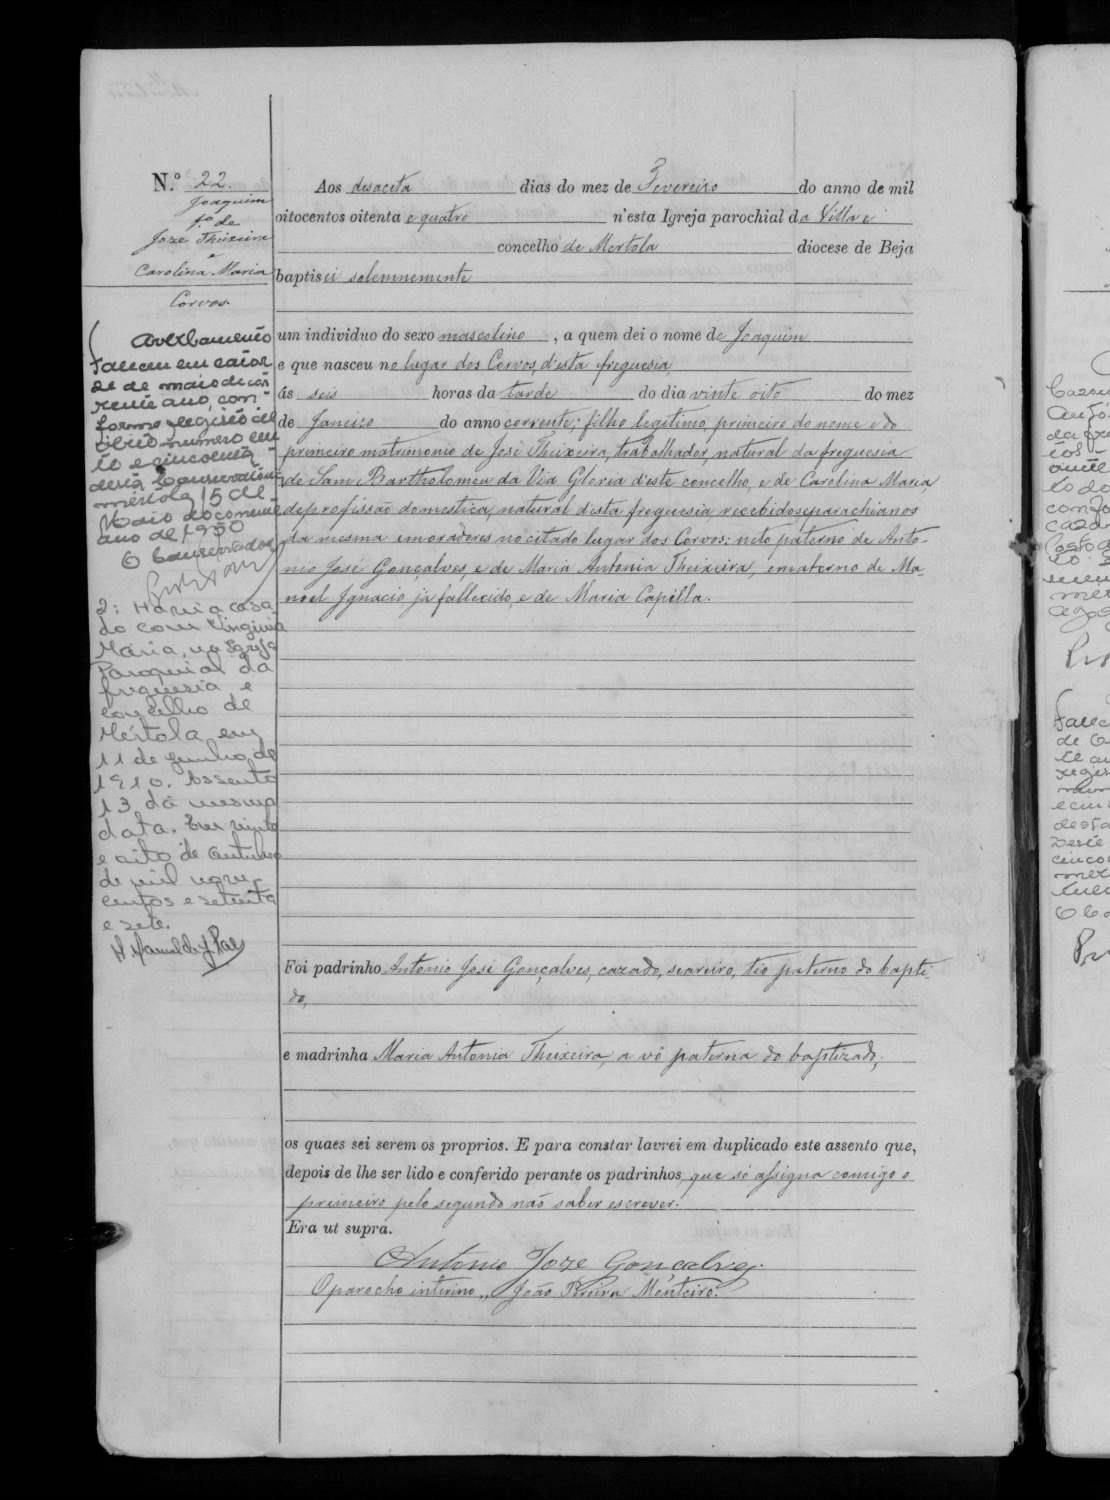 N.º 22.
Joaquim
f.º de
Joze Theixeira
e
Carolina Maria
Corvos.
Aos desaceta dias do mez de Fevereiro do anno de mil
oitocentos oitenta e quatro n'esta Igreja parochial da Villa e
concelho de Mertola diocese de Beja
baptisei solemnemente
um individuo do sexo mascolino, a quem dei o nome de Joaquim
e que nasceu no lugar dos Corvos, d'esta freguesia,
ás seis horas da tarde do dia vinte oito do mez
de Janeiro do anno corrente; filho legitimo, primeiro do nome e do
primeiro matrimonio de José Theixeira, trabalhador, natural da freguesia
de Sam Bartholomeu da Via Gloria d'este concelho, e de Carolina Maria,
de profissão domestica, natural d'esta freguesia, recebidos e parachianos
da mesma e moradores no citado lugar dos Corvos: neto paterno de Anto-
nio José Gonçalves, e de Maria Antonia Theixeira, e materno de Ma-
noel Ignacio já fallecido, e de Maria Capilla.
Averbamento
Faleceu em catorze
de maio do cor
rente ano, con-
forme registo de
óbito numero cen
to e cincoenta
desta Conservatória
mértola 15 de
Maio do corrente
ano de 1950
O Conservador
2: Havia casa
do com Virginia
Maria, na Igreja
Paroquial da
freguesia e
concelho de
Mértola em
11 de Junho de
1910. Assento
13 da mesma
data. Em vinte
e oito de Outubro
de mil nove-
centos e setenta
e sete.
Foi padrinho Antonio José Gonçalves, cazado, seareiro, tio paterno do bapti-
do,
e madrinha Maria Antonia Theixeira, a vó paterna do baptizado,
os quaes sei serem os proprios. E para constar lavrei em duplicado este assento que,
depois de lhe ser lido e conferido perante os padrinhos, que só assigna comigo o
primeiro pelo segundo não saber escrever.
Era ut supra.
Antonio Joze Gonçalves.
O parocho interino,, João Pereira Monteiro.